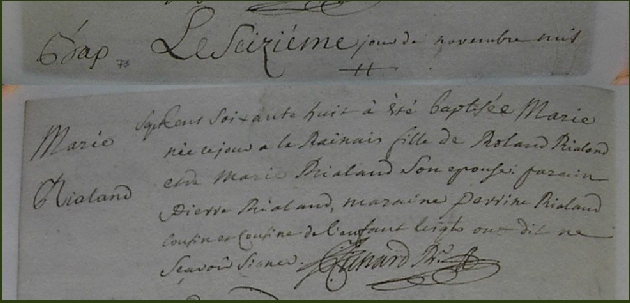 Bap 78 Le Seiziéme jour de novembre mil
Marie Rialand
Septcent Soixante huit à été baptisée Marie
née ce jour a le Rainais fille de Roland Rialand
et de Marie Rialand Son epouse; parain
Pierre Rialand, maraine perrine Rialand
Cousin et Cousine de l'enfant lesqls ont dit ne
Scavoir Signer.